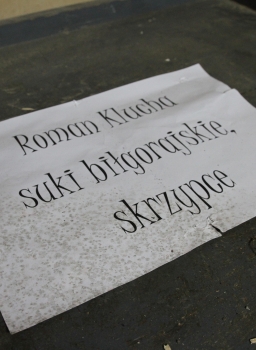 Roman Klacha
suki biłgorajskie,
skrzypce